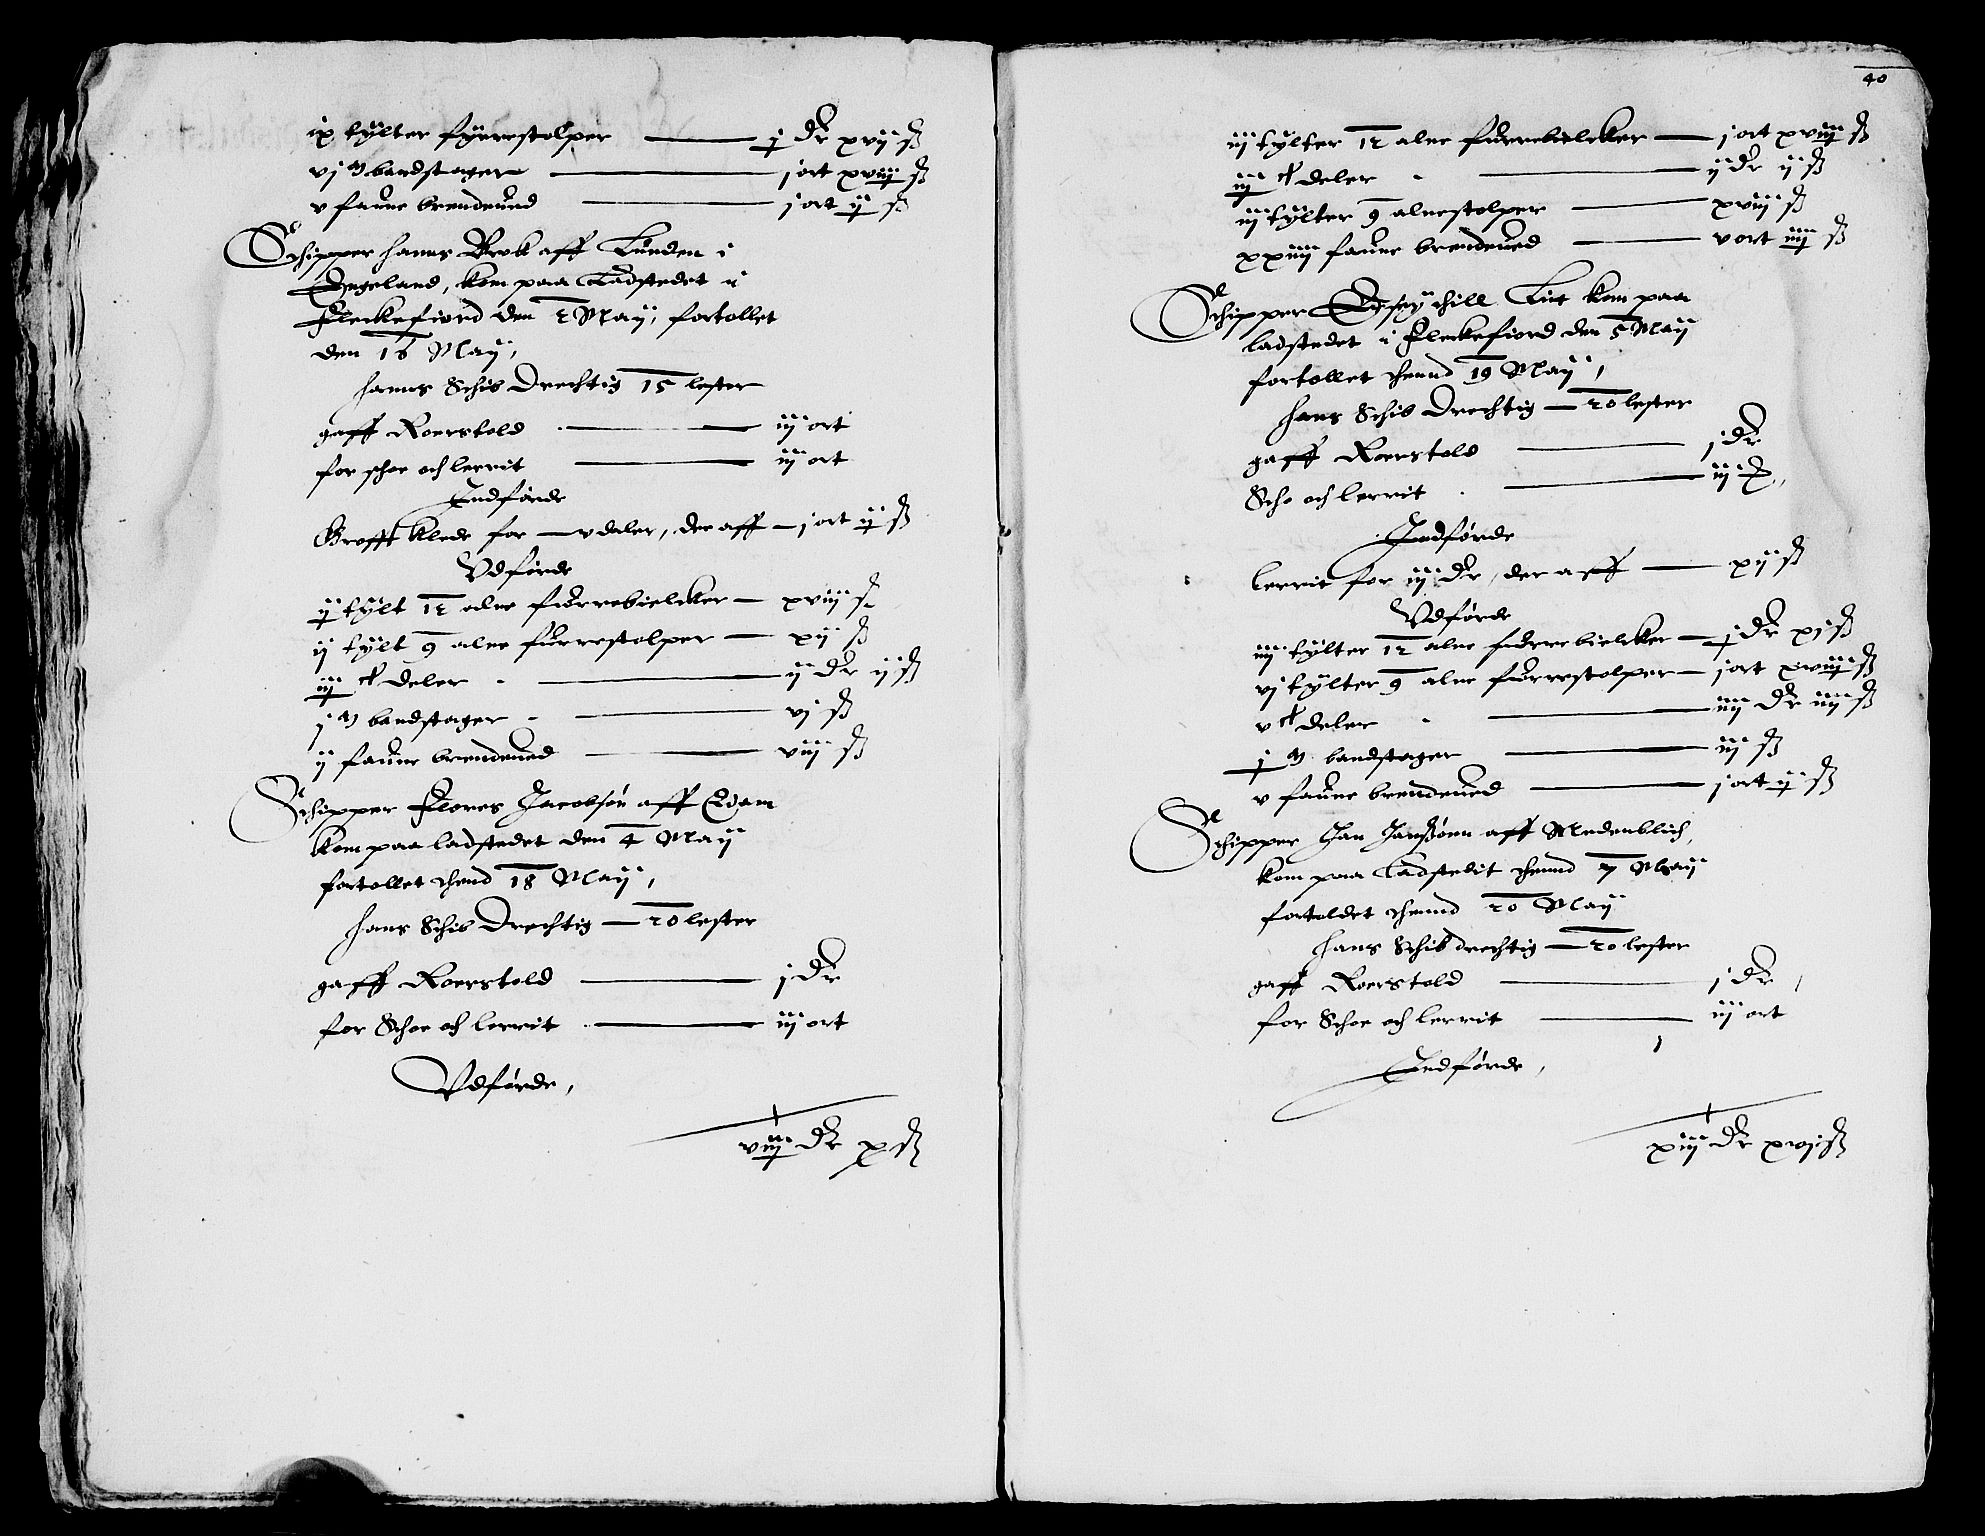 ix tylter fyrrestolper — j dr xvij ß
vj bandstager — j ort xviij ß
v faune brendeued — j ort ij ß
Schipper Hanns Brok aff Lunden i
Engeland, kom paa Ladstedet i
Fleckefiord den 2 May, fortollet
den 16 May,
Hanns Schib Drechtig 15 lester
gaff Roerstold — iij ort
for schoe och lerrit — iij ort
Indførde
Grofft klede for — v daler, der aff — j ort ij ß
Vdførde
ij tylt 12 alne furrebielcker — xviij ß
ij tylt 9 alne furrestolper — xij ß
iij deler — ij dr ij ß
j bandstager — vj ß
ij faune brendeued — viij ß
Schipper Flores Jacobsøn aff Edam
kom paa ladstedet den 4 May
fortollet thend 18 May,
Hans Schib Drechtig — 20 lester
gaff Roerstold — j dr
for Schoe och lerrit — iij ort
Vdførde,
viij dr x ß
40
iij tylter 12 alne furrebielcker — j ort xviij ß
iij deler — ij dr ij ß
iij tylter 9 alne stolper — xviij ß
xxiiij faune brendeued — v ort iiij ß
Schipper kom paa
ladstedet i Fleckefiord den 5 May
fortollet thennd 19 May,
Hans Schib Drechtig — 20 lester
gaff Roerstold — j dr
Scho och lerrit — iij
Indførde
lerrit for iij dr, der aff — xij ß
Vdførde
iiij tylter 12 alne furrebielcker — j dr xj ß
vj tylter 9 alne furrestolper — j ort xviij ß
v deler — iiij dr iiij ß
j bandstager — iij ß
v faune brendeued — j ort ij ß
Schipper Jan Janßønn aff Medenblich,
kom paa Ladstedit thennd 7 May
fortoldet thennd 20 May
Hans Schib drechtig — 20 lester
gaff Roerstold — j dr,
for Schoe och lerrit — iij ort
Indførde,
xiij dr xvj ß